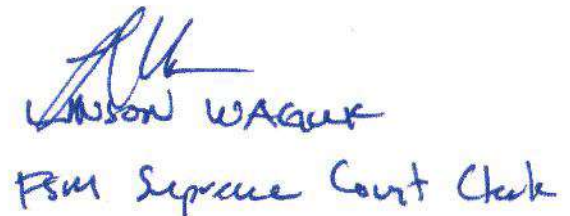 WAGUK
FSM Supreme Court Clerk